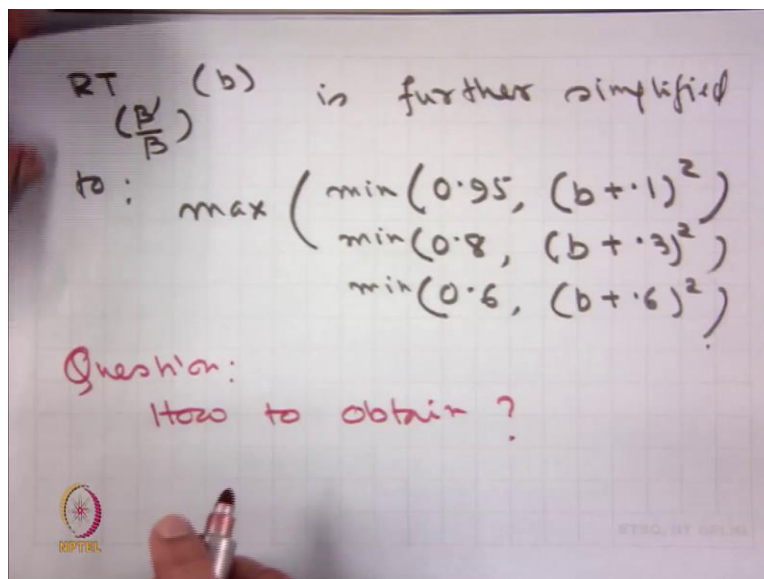 RT (B'/B) (b) is further simplified
to: max ( min(0.95, (b+.1)²)
min(0.8, (b+.3)²)
min(0.6, (b+.6)²) )
Question:
How to obtain ?
NPTEL